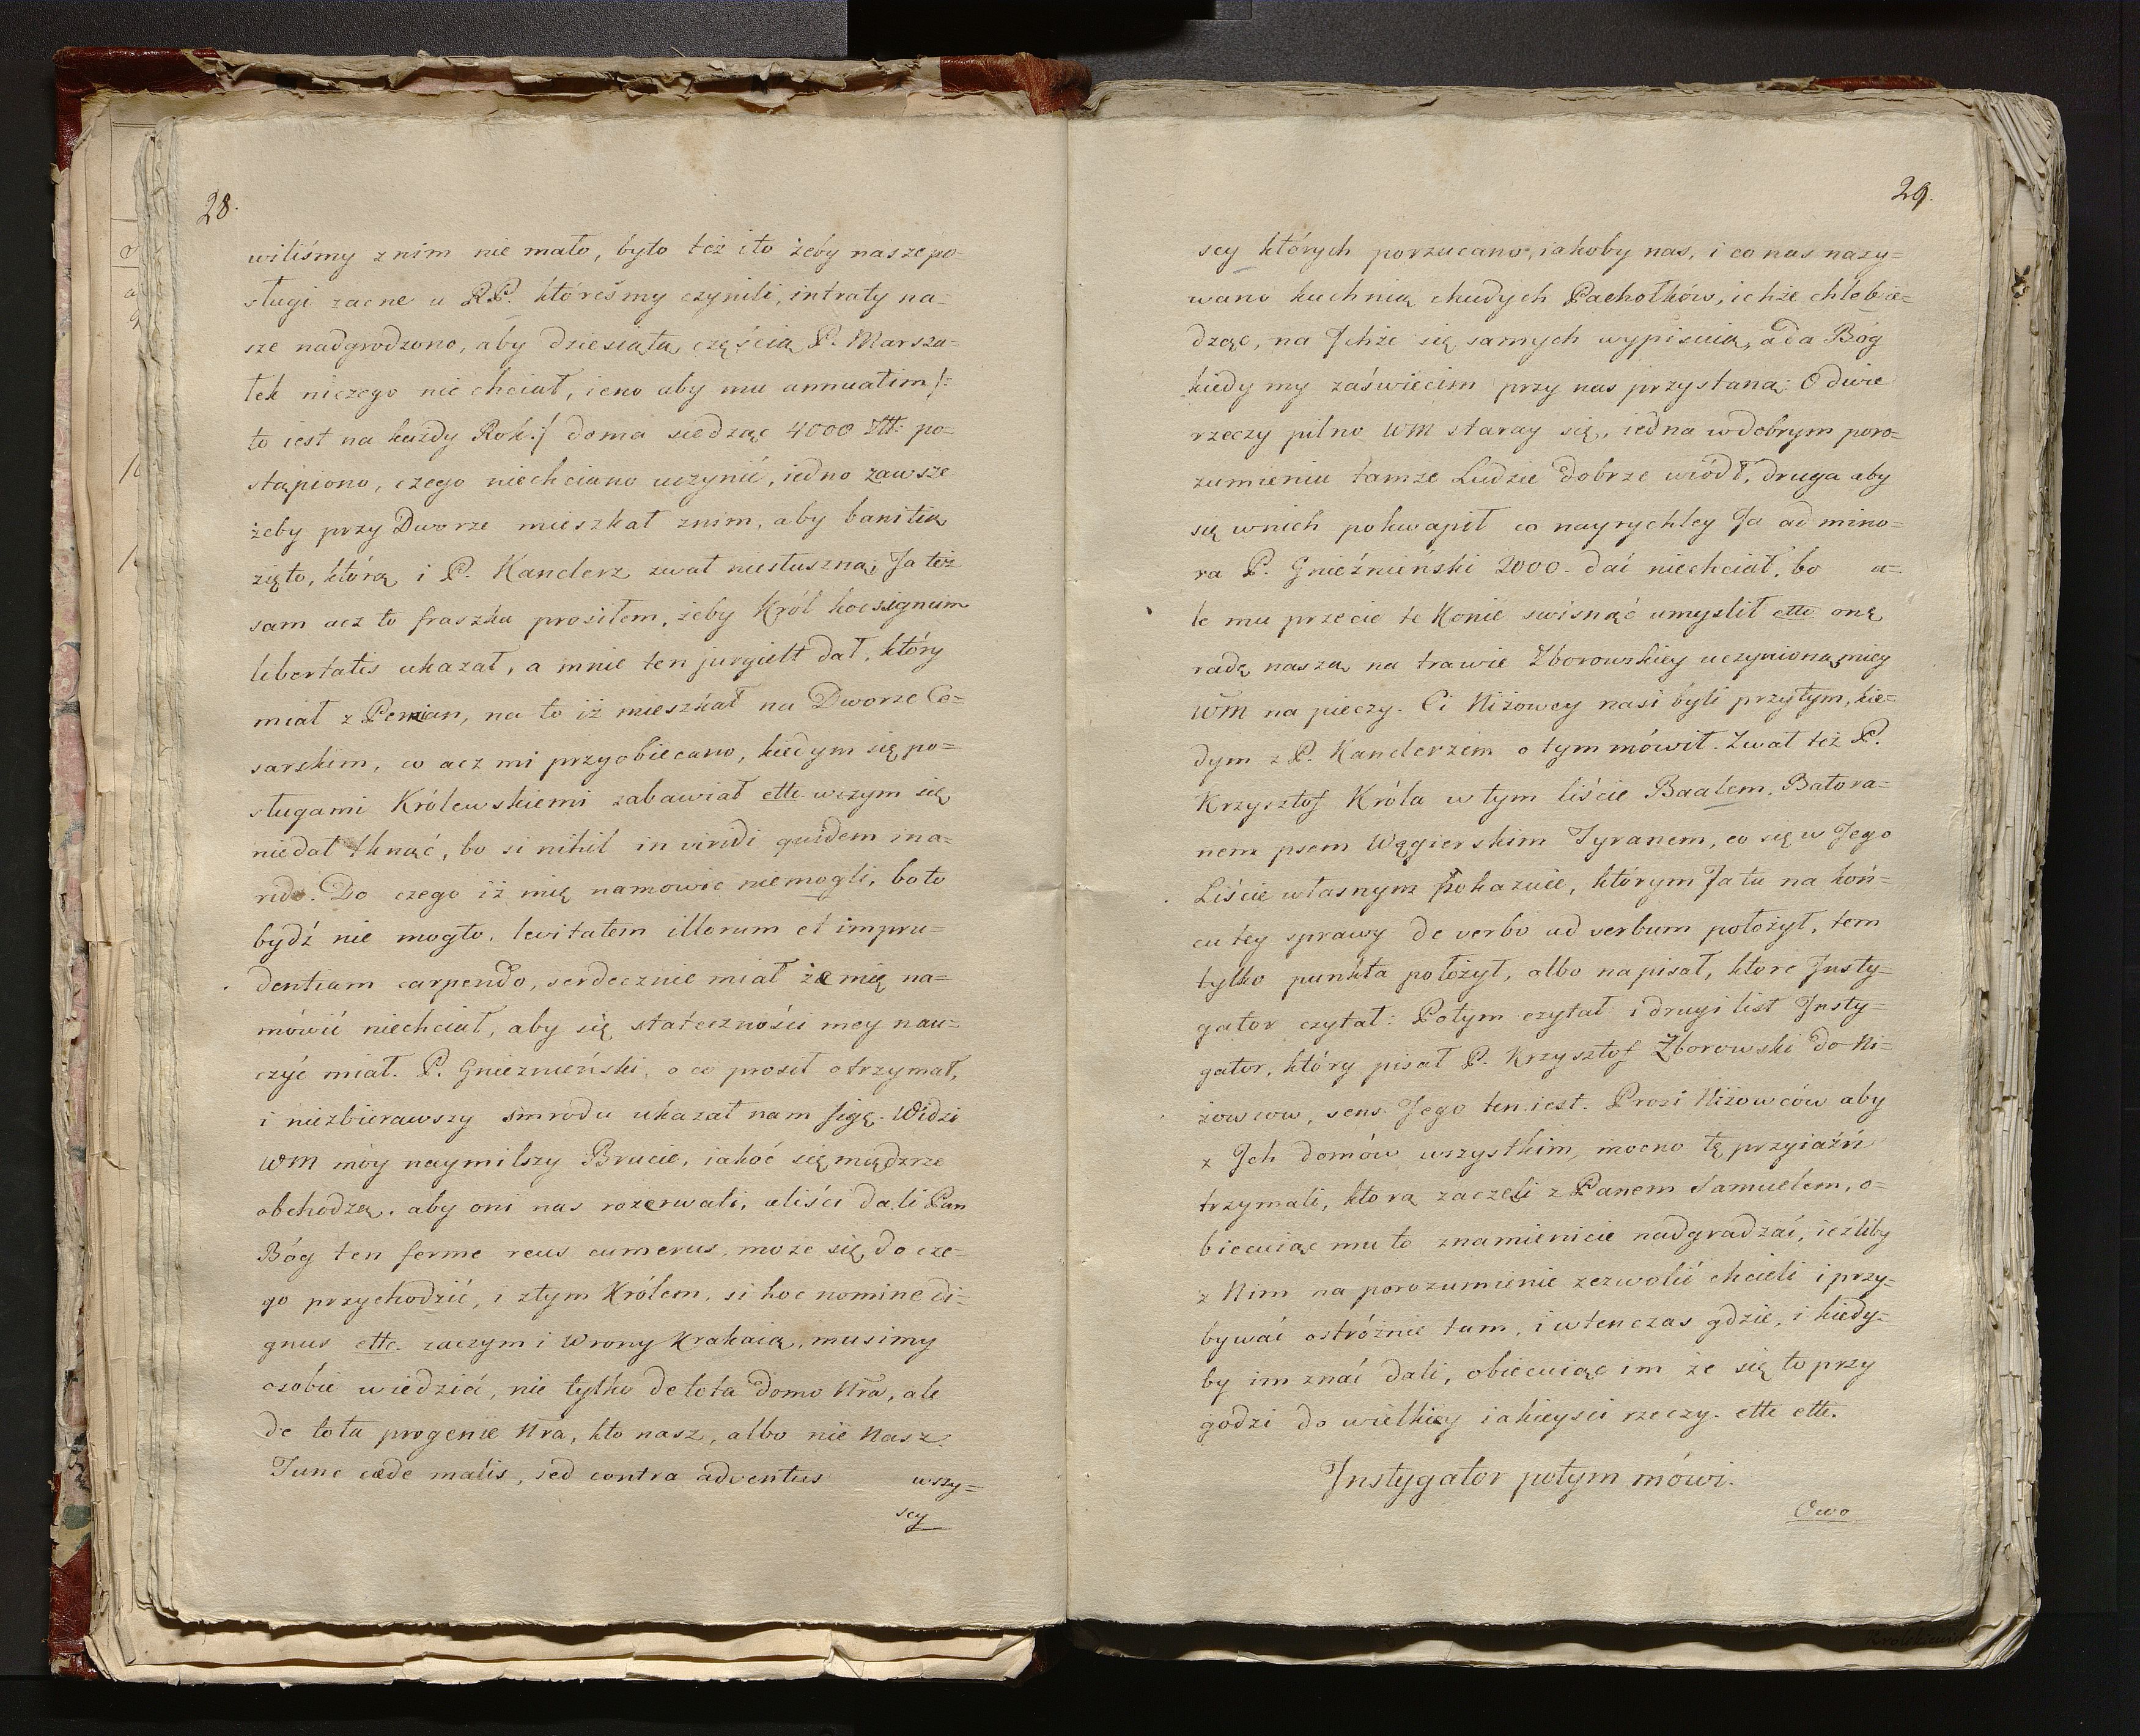 28.
wiliśmy z nim nie mało, było też i to żeby nasze po-
sługi zacne u RP. któreśmy czynili, intraty na-
sze nadgrodzono, aby dziesiątą częścią P. Marsza-
łek niczego nie chciał, ieno aby mu annuatim /:
to iest na każdy Rok :/ doma siedząc 4000 Ztt: po-
stąpiono, czego niechciano uczynić, iedno zawsze
żeby przy Dworze mieszkał z nim, aby banitią
zięto, którą i P. Kanclerz zwał niesłuszną; Ja też
sam acz to fraszka prosiłem, żeby Król hoc signum
libertatis ukazał, a mnie ten jurgielt dał, który
miał z Penzian, na to iż mieszkał na Dworze Ce-
sarskim, co acz mi przyobiecano, kiedym się po-
sługami Królewskiemi zabawiał ette. wczym się
niedał tknąć, bo si nihil in viridi quidem in a-
rido. Do czego iż mię namowic niemogli, bo to
bydź nie mogło, levitatem illorum et impru-
dentiam carpendo, serdecznie miał że mię na-
mówić niechciał, aby się stateczności mey nau-
czyć miał. P. Gnieznieński, o co prosił otrzymał,
i niezbierawszy smrodu ukazał nam figę. Widzi
WM móy naymilszy Bracie, iakoć się mądrze
obchodzą, aby oni nas rozerwali, aliści da.li Pan
Bóg ten ferme reus cumerus, moze się do cze-
go przychodzić, i złym Królem, si hoc nomine di-
gnus ette. zaczym i Wrony Krakaią, musimy
osóbie wiedzieć, nie tylko de tota domo Nra, ale
de tota progenie Nra, kto nasz, albo nie Nasz.
Tunc cæde malis, sed contra adventus wszy-
scy
29.
scy których porzucano, iakoby nas, i co nas nazy-
wano kuchnią chudych Pachołków, ichże chleb ie-
dząc, na Ichże się samych wypisuią, a da Bóg
kiedy my zaświecim przy nas przystaną: O dwie
rzeczy pilno WM staray się, iedna w dobrym poro-
zumieniu tamże Ludzie dobrze wiódł, druga aby
się wnich pokwapił co nayrychley Ja ad mino-
ra P. Gnieźnieński 2000. dać niechciał, bo a-
le mu przecie te Konie swisnąć umyslił ette. onę
radę naszą na trawie Zborowskiey uczynioną miey
WM na pieczy. Ci Niżowcy nasi byli przytym, kie-
dym z P. Kanclerzem o tym mówił. Zwał też P.
Krzysztof Króla w tym liście Baalem, Batora-
nem psem Węgierskim Tyranem, co się w Jego
Liście własnym pokazuie, którym Ja tu na koń-
cu tey sprawy de verbo ad verbum położył, tem
tylko punkta położył, albo napisał, ktore Insty-
gator czytał: Potym czytał i drugi list Insty-
gator, który pisał P. Krzysztof Zborowski do Ni-
żowcow, sens Jego ten iest. Prosi Niżowców aby
z Ich domów wszystkim mocno tę przyiaźń
trzymali, ktorą zaczęli z Panem Samuelem, o-
biecuiąc mu to znamienicie nadgradzać, ieźliby
z Nim na porozumienie zezwolić chcieli i przy-
bywać ostróżnie tam, i wten czas gdzie, i kiedy-
by im znać dali, obiecuiąc im że się to przy
godzi do wielkiey iakieysci rzeczy. ette ette.
Instygator potym mówi.
Owo